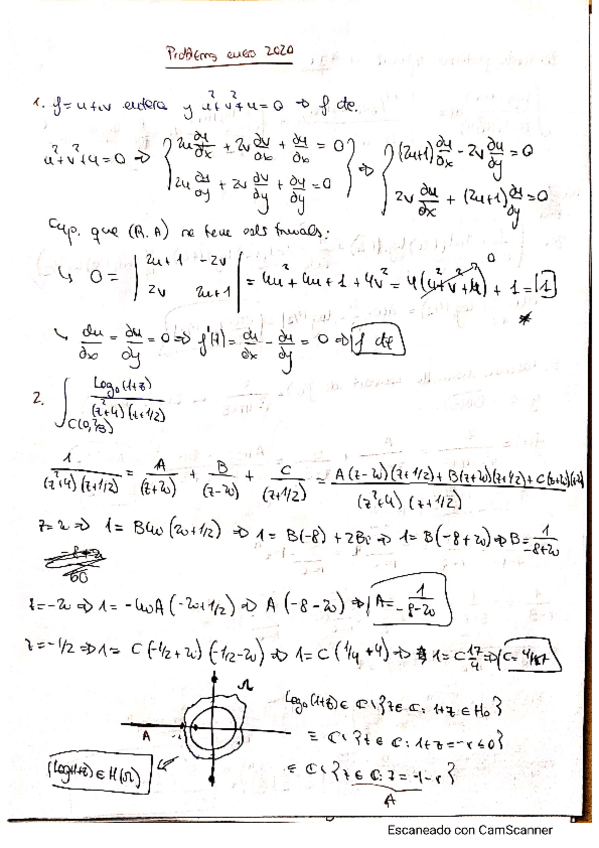 Problemas enero 2020
1. f=u+iv entera y u²+v²+u=0 ⇒ f cte.
u²+v²+u=0 ⇒ { 2u ∂u/∂x + 2v ∂v/∂x + ∂u/∂x = 0 ; 2u ∂u/∂y + 2v ∂v/∂y + ∂u/∂y = 0 } ⇒ { (2u+1) ∂u/∂x - 2v ∂u/∂y = 0 ; 2v ∂u/∂x + (2u+1) ∂u/∂y = 0
que (R.A) tiene sols :
↳ 0 = | 2u+1 -2v ; 2v 2u+1 | = 4u²+4u+1+4v² = 4(u²+v²+u) + 1 = 1
0
*
↳ ∂u/∂x = ∂u/∂y = 0 ⇒ f'(z) = ∂u/∂x - ∂u/∂y = 0 ⇒ f cte
2. ∫ C(0,2/3) Log₀(1+z) / (z²+4)(z+1/2)
1/(z²+4)(z+1/2) = A/(z+2i) + B/(z-2i) + C/(z+1/2) = A(z-2i)(z+1/2) + B(z+2i)(z+1/2) + C(z+2i)(z-2i) / (z²+4)(z+1/2)
z=2i ⇒ 1 = B4i(2i+1/2) ⇒ 1 = B(-8) + 2Bi ⇒ 1 = B(-8+2i) ⇒ B = 1/-8+2i
z=-2i ⇒ 1 = -4iA(-2i+1/2) ⇒ A(-8-2i) ⇒ A = 1/-8-2i
z=-1/2 ⇒ 1 = C(-1/2+2i)(-1/2-2i) ⇒ 1 = C(1/4+4) ⇒ 1 = C 17/4 ⇒ C = 4/17
Ω
A
Log₀(1+z) ∈ ℂ\{z∈ℂ: 1+z ∈ H₀}
≡ ℂ\{z∈ℂ: 1+z = -r ≤ 0}
≡ ℂ\{z∈ℂ: z = -1-r}
A
(Log(1+z)) ∈ H(Ω)
Escaneado con CamScanner